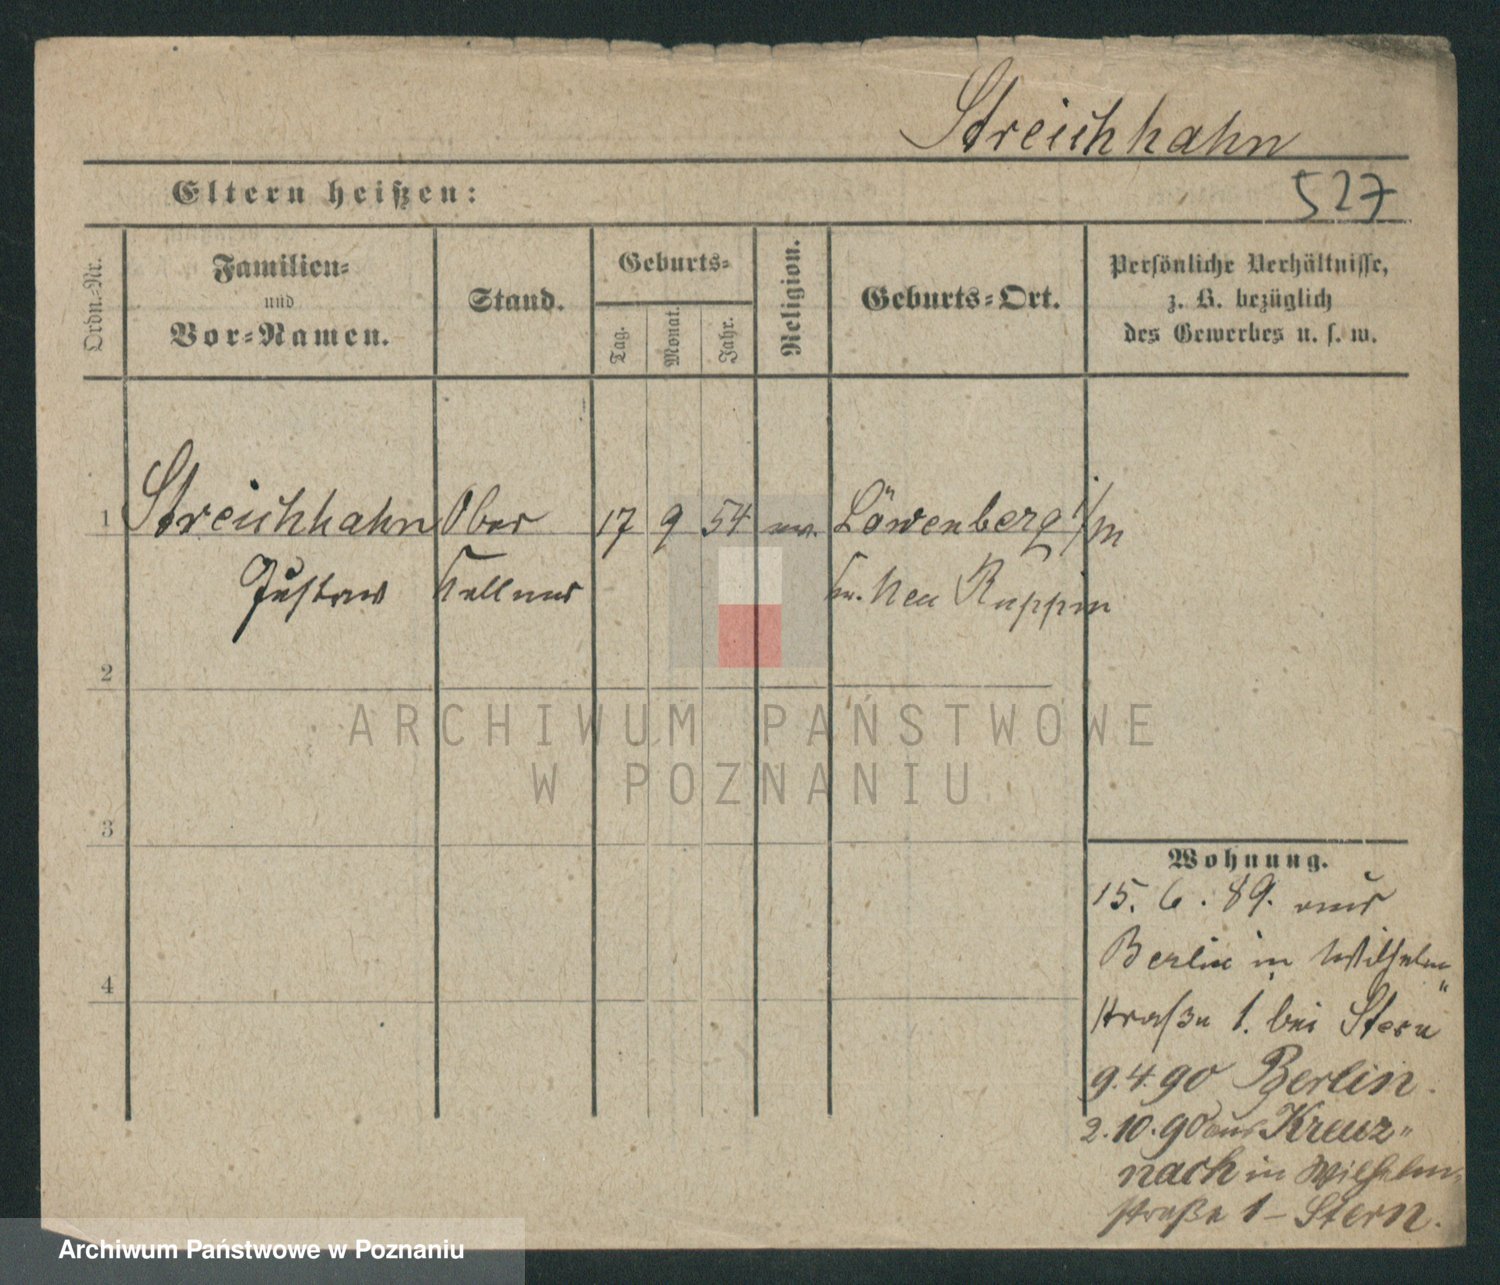 Streichhahn
Eltern heißen:
527
Ordn.-Nr.
Familien-
und
Vor-Namen.
Stand.
Geburts-
Tag.
Monat.
Jahr.
Religion.
Geburts-Ort.
Persönliche Verhältnisse,
z. B. bezüglich
des Gewerbes u. s. w.
1 Streichhahn Ober 17 9 54 ev. Löwenberg i/m
Gustav Kellner Kr. Neu Ruppin
2
3
4
Wohnung.
15. 6. 89. aus
Berlin in Wilhelm
straße 1. bei Stern
9.4.90 Berlin.
2.10.90 aus Kreuz-
nach in Wilhelm-
straße 1 – Stern.
ARCHIWUM PAŃSTWOWE
W POZNANIU
Archiwum Państwowe w Poznaniu